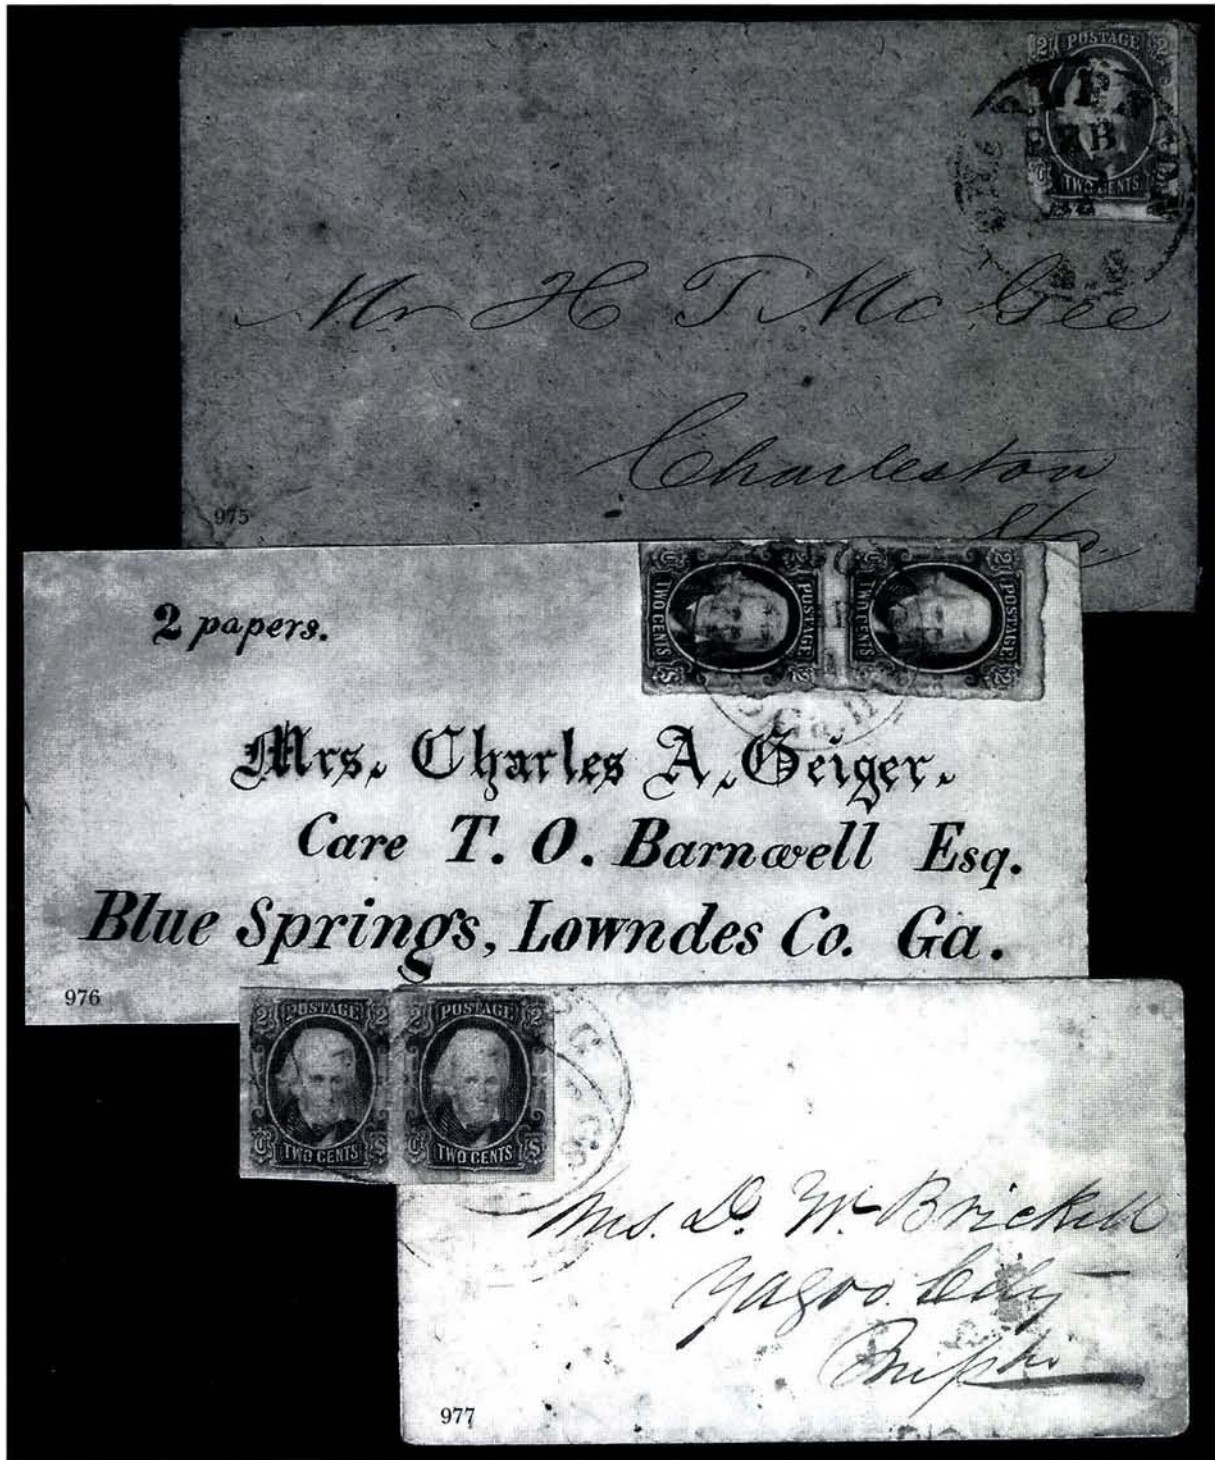 2 POSTAGE 2
TWO CENTS
Mr H T McGee
Charleston
975
2 papers.
POSTAGE
TWO CENTS
POSTAGE
TWO CENTS
Ga.
Mrs. Charles A. Geiger.
Care T. O. Barnwell Esq.
Blue Springs, Lowndes Co. Ga.
976
2 POSTAGE 2
C TWO CENTS S
2 POSTAGE 2
C TWO CENTS S
Mrs. D. W. Brickell
Yazoo City
977